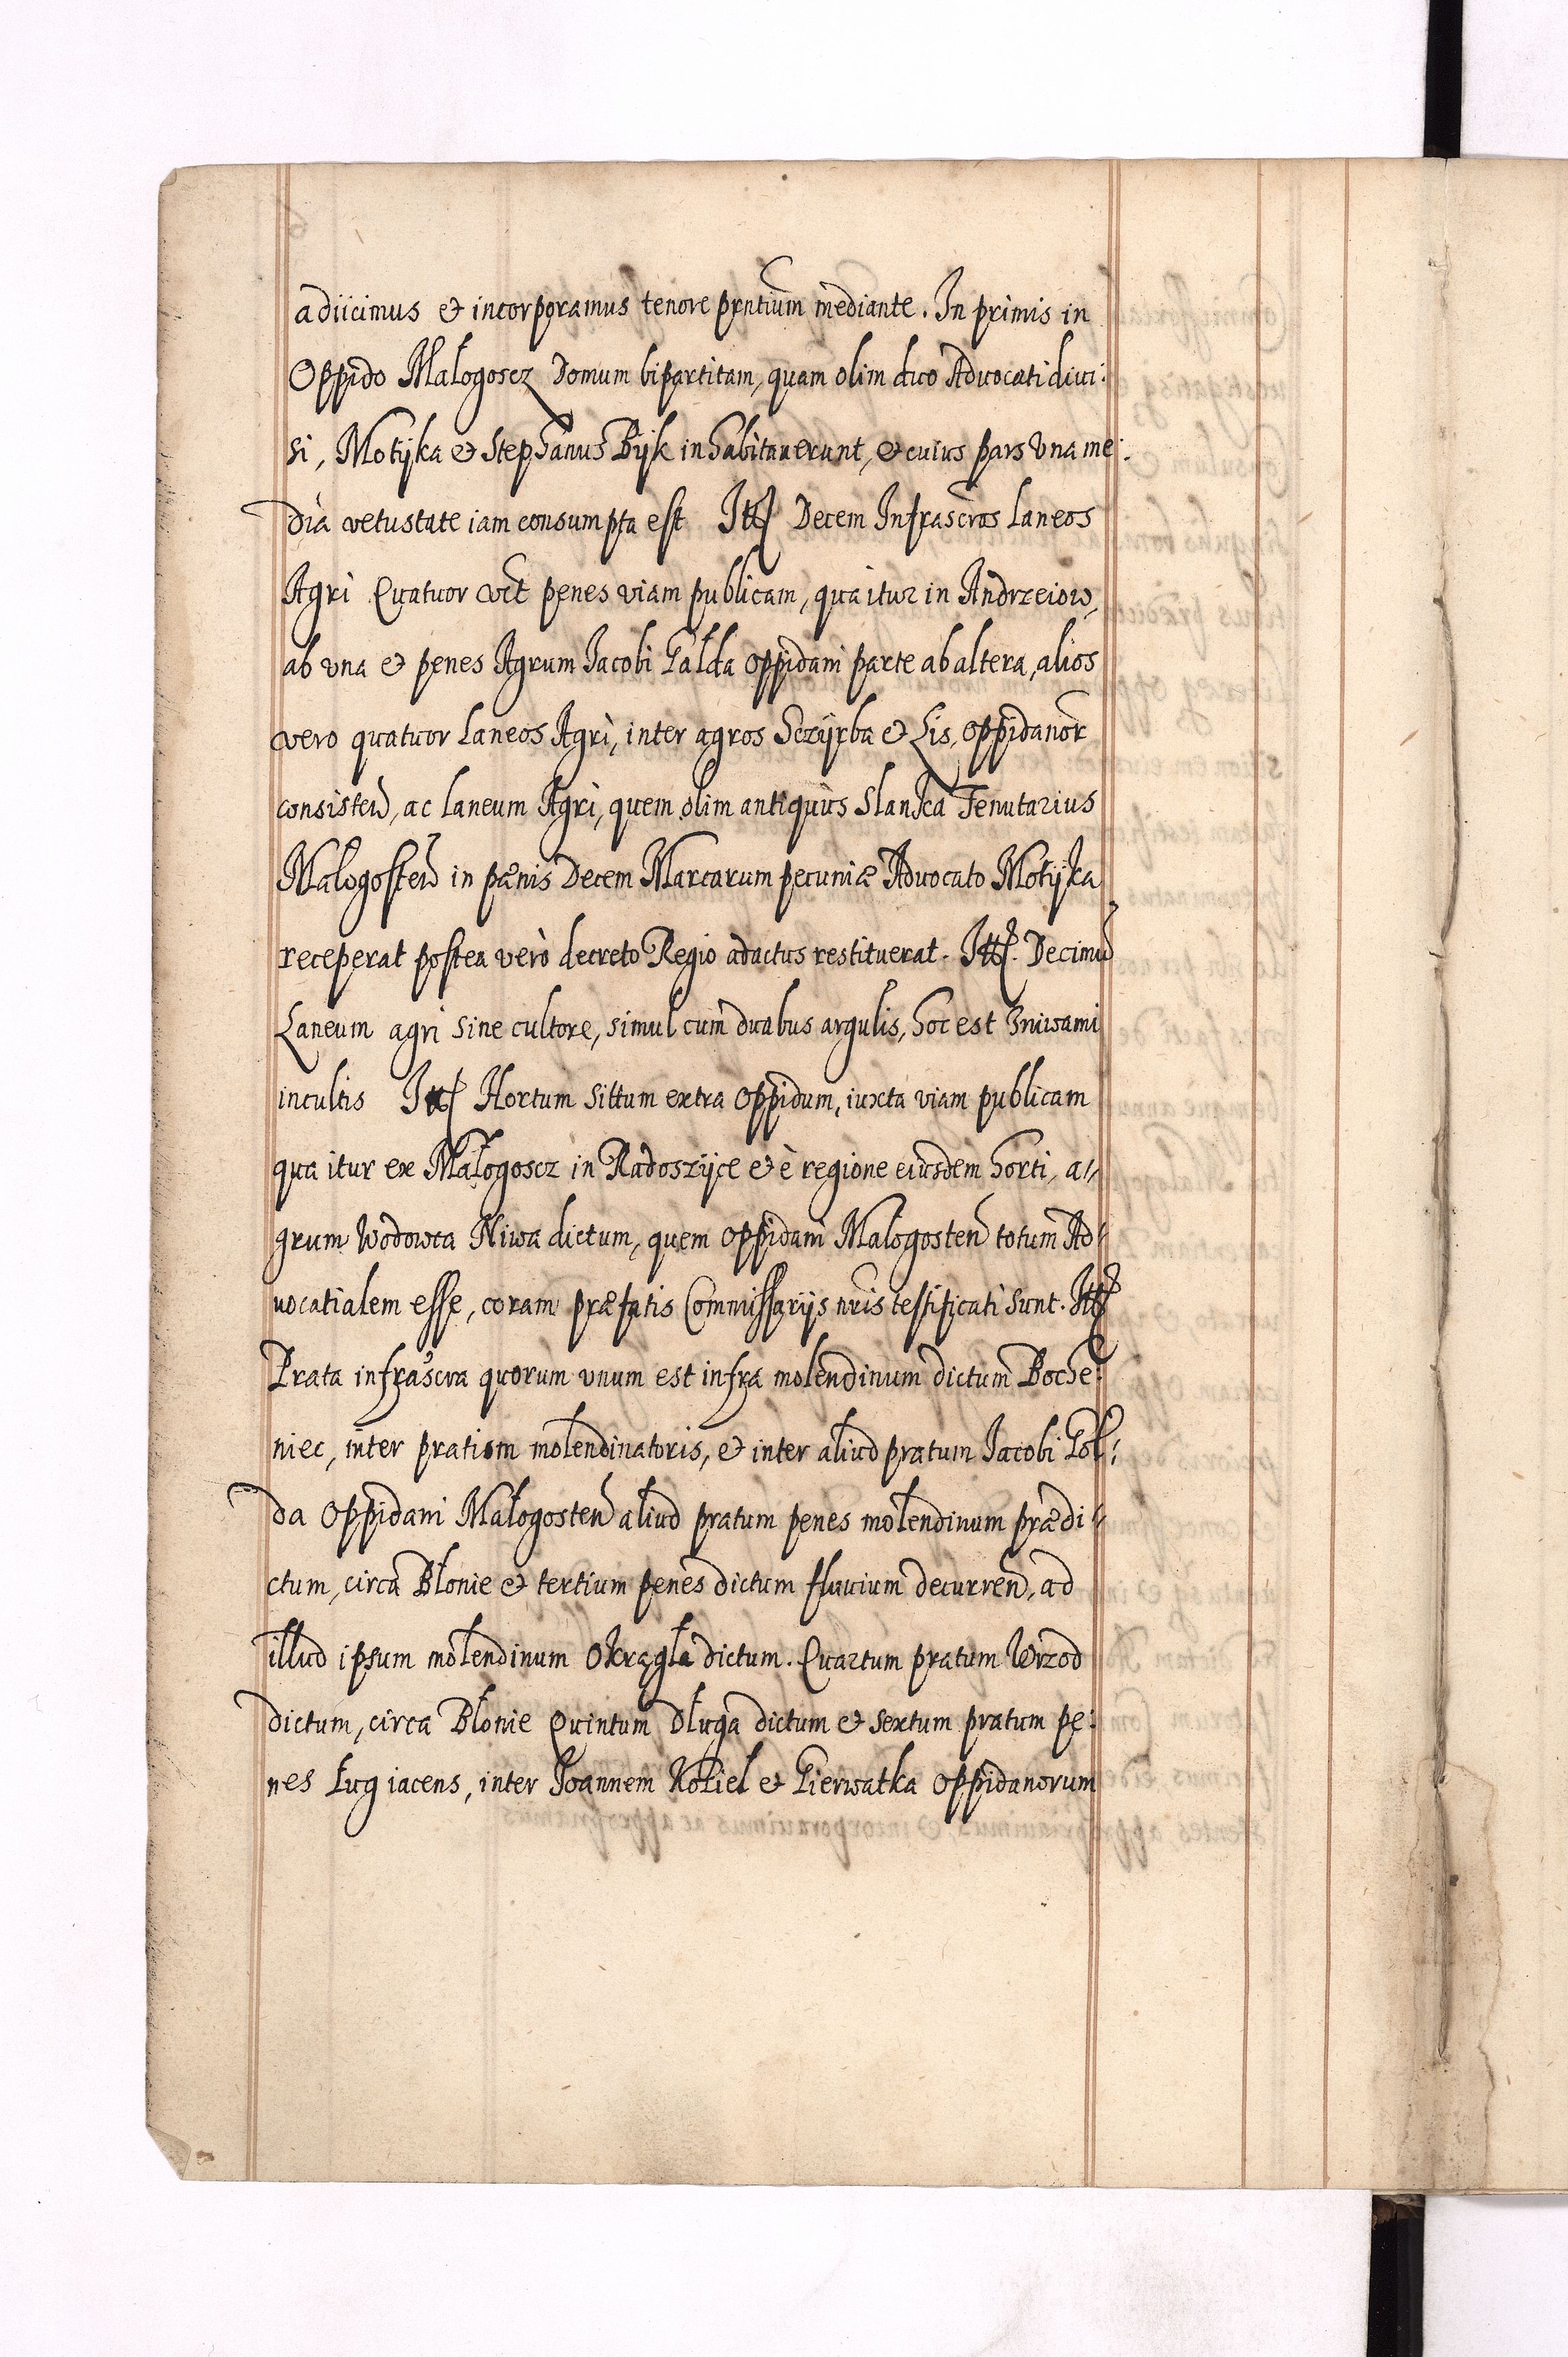 adiicimus et incorporamus tenore pntium mediante. In primis in
Oppido Małogoscz Domum bipartitam, quam olim duo Advocati diui:
si, Motÿka et Stephanus Bÿk inhabitauerunt, et cuius pars vna me:
dia vetustate iam consumpta est Itt Decem Infrascros Laneos
Agri Quatuor vczt penes viam publicam, qua itur in Andrzeiow,
ab vna et penes Agrum Iacobi Gałda oppidani parte ab altera, alios
vero quatuor Laneos Agri, inter agros Sczÿrba et Lis, oppidanor
consisten, ac laneum Agri, quem olim antiquus Slanka Tenutarius
Małogosten in pænis Decem Marcarum pecuniæ Advocato Motÿka
receperat postea verò decreto Regio adactus restituerat. Itt. Decimu
Laneum agri sine cultore, simul cum duabus argulis, hoc est Zniwami
incultis Itt Hortum sittum extra oppidum, iuxta viam publicam
qua itur ex Małogoscz in Radoszÿce et è regione eiusdem horti, a//
grum Wodowca Niwa dictum, quem oppidani Małogosten totum Ad//
uocatialem esse, coram præfatis Commissarijs nris testificati sunt. Itt
Prata infrascra quorum vnum est infra molendinum dictum Boche:
niec, inter pratum molendinatoris, et inter aliud pratum Iacobi Goł:
da Oppidani Małogosten aliud pratum penes molendinum prædi//
ctum, circa Błonie et tertium penes dictum fluuium decurren, ad
illud ipsum molendinum Okrągła dictum. Quartum pratum Wrzod
dictum, circa Błonie Quintum Długa dictum et sextum pratum pe:
nes Ług iacens, inter Joannem Kozieł et Gierwatka oppidanorum